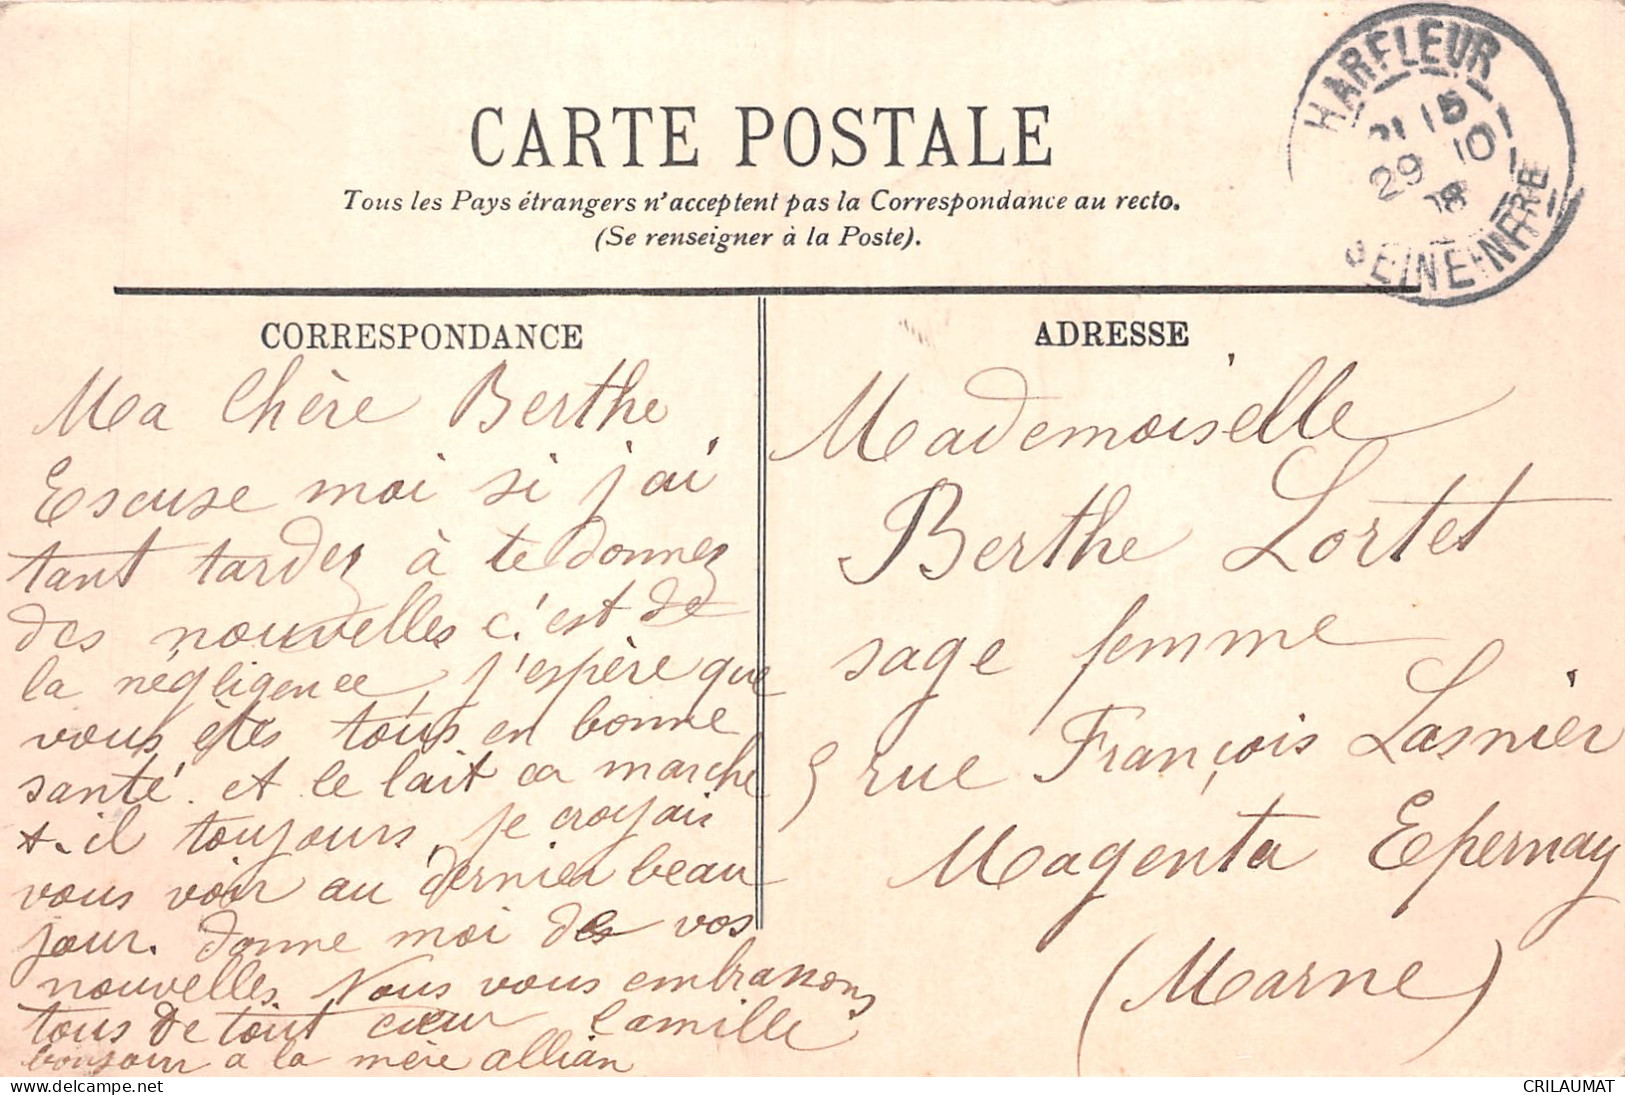 CARTE POSTALE
Tous les Pays étrangers n'acceptent pas la Correspondance au recto.
(Se renseigner à la Poste).
HARFLEUR
29 10
08
SEINE INFRE
CORRESPONDANCE
Ma Chère Berthe
Escuse moi si j'ai
tant tardez à te donnez
des nouvelles c'est de
la négligence, j'espère que
vous êtes tous en bonne
santé. et le lait ca marche
t-il toujours, je croyais
vous voir au dernier beau
jour. donne moi des vos
nouvelles. Nous vous embrassons
tous de tout cœur Camille
bonjour a la mère allian
ADRESSE
Mademoiselle
Berthe Lortet
sage femme
9 rue François Lasnier
Magenta Epernay
(Marne)
www.delcampe.net
CRILAUMAT